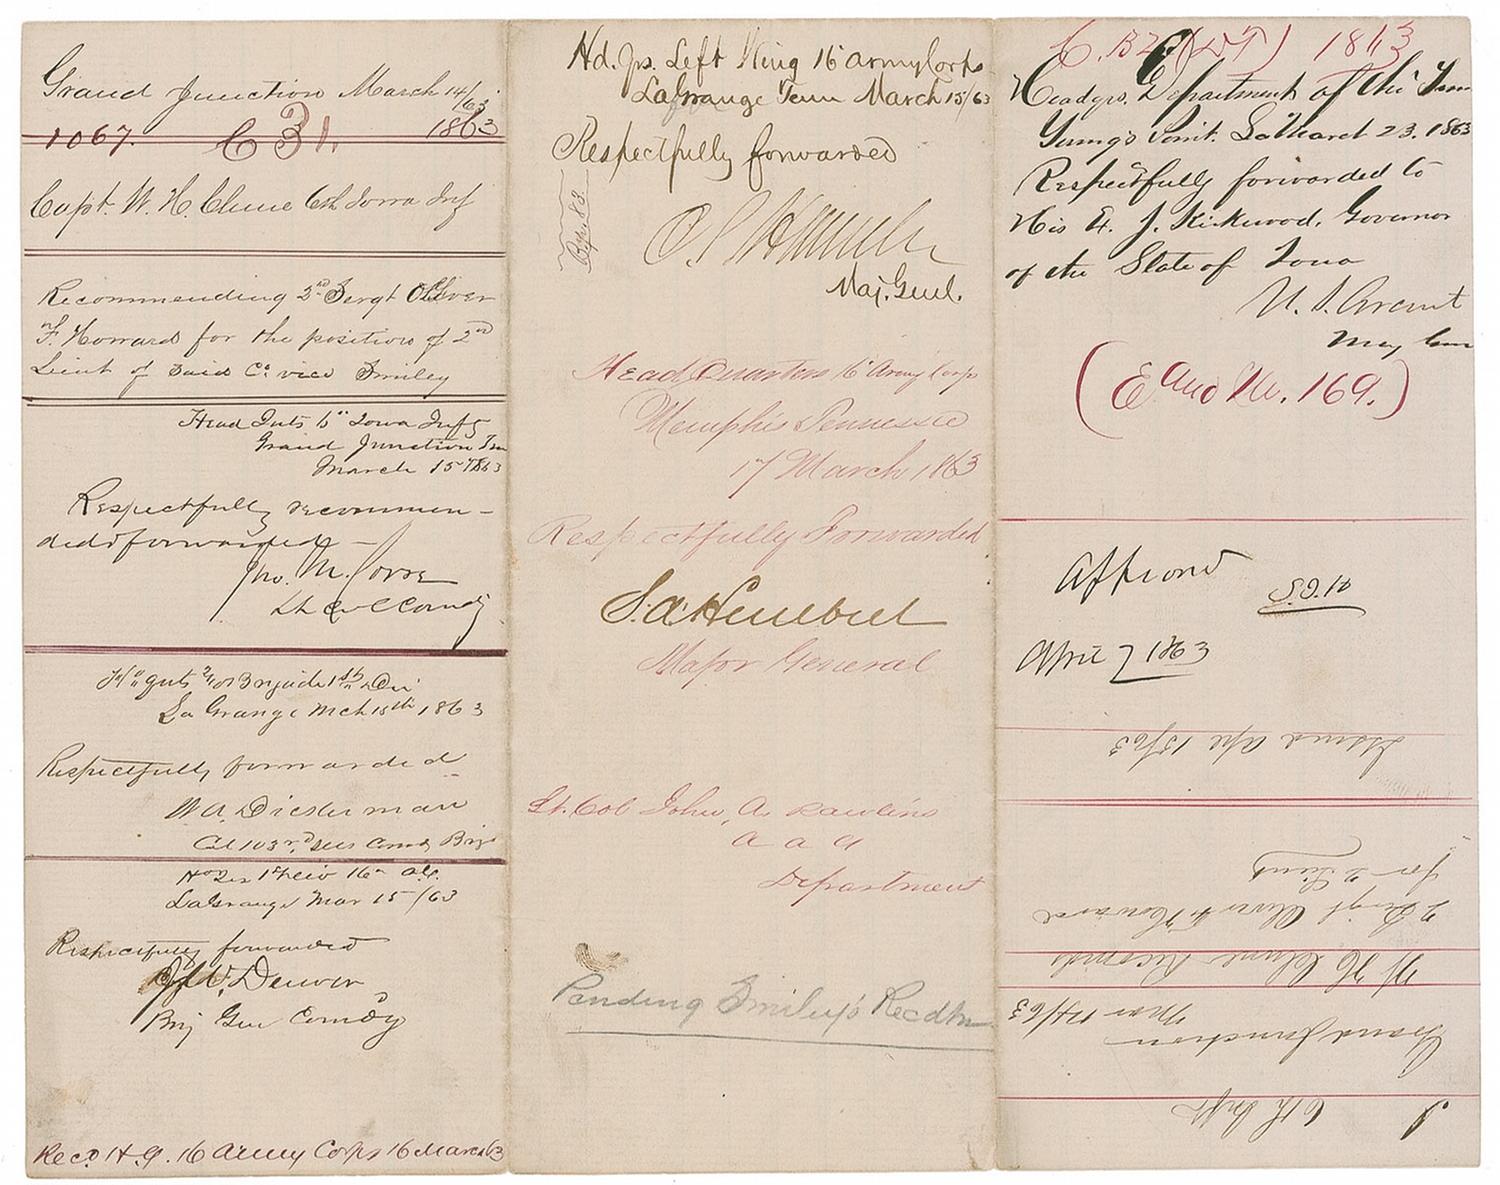 Grand Junction March 14/63
1067. C 31. 1863
Capt. W. H. Clune 6th Iowa Inf
Recommending 2nd Sergt Oliver
F. Howard for the position of 2nd
Lieut of said Co. vice Smiley
Head Qrts 6th Iowa Infy
Grand Junction Ten
March 15th 1863
Respectfully recommen-
ded & forwarded—
Jno. M. Corse
Lt Col Comdg
Hd qrts Brigade 1st Div
La Grange Mch 15th 1863
Respectfully forwarded
W. A. Dickerman
Col 103rd Ills Comdg Brig
Hd Qrs 1st Div 16th A.C.
LaGrange Mar 15/63
Respectfully forwarded
J. W. Denver
Brig Gen Comdg
Recd H. Q. 16 Army Corps 16 March 63
Hd. Qrs. Left Wing 16 Army Corps
LaGrange Tenn March 15/63
Respectfully forwarded
C. S. Hamilton
Maj. Genl.
Head Quarters 16 Army Corps
Memphis Tennessee
17 March 1863
Respectfully Forwarded
S. A. Hurlbut
Major General
Lt. Col John A. Rawlins
A A G
Department
Pending Smiley's Recdtn
(DT) 1863
Headqrs. Department of the Tenn
Young's Point. La March 23. 1863
Respectfully forwarded to
His E. J. Kirkwood, Governor
of the State of Iowa
U. S. Grant
Maj Genl
(E and M. 169.)
Approved
S.J.K
April 7 1863
Issued Apl 15/63
6th Inft
Grand Junction
Mar 14/63
W H Clune Recomds
2 Sergt Oliver F Howard
for 2 Lieut